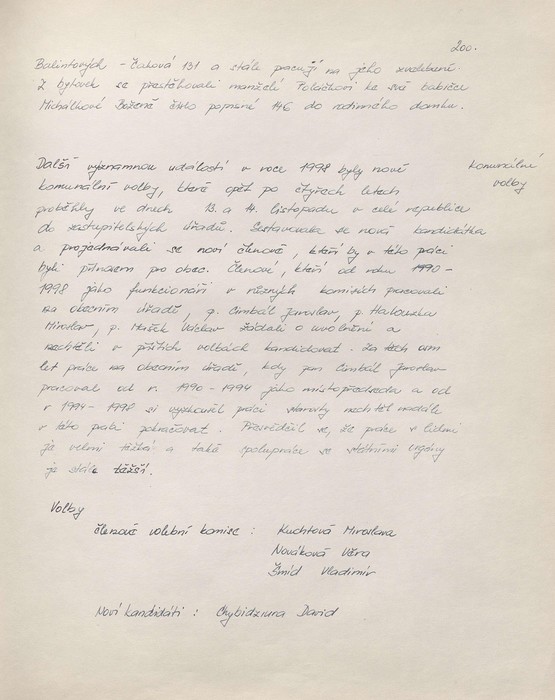 200.
Balintových - Čaková 131 a stále pracují na jeho zvelebení.
Z bytovek se přestěhovali manželé Poláchovi ke své babičce
Michálkové Boženě číslo popisné 146 do rodinného domku.
Další významnou událostí v roce 1998 byly nové
komunální
komunální volby, které opět po čtyřech letech
volby
proběhly ve dnech 13. a 14. listopadu v celé republice
do zastupitelských úřadů. Sestavovala se nová kandidátka
a projednávali se noví členové, kteří by v této práci
byli přínosem pro obec. Členové, kteří od roku 1990 -
1998 jako funkcionáři v různých komisích pracovali
na obecním úřadě, p. Cimbál Jaroslav, p. Haluzka
Miroslav, p. Mašek Václav žádali o uvolnění a
nechtěli v příštích volbách kandidovat. Za těch osm
let práce na obecním úřadě, kdy pan Cimbál Jaroslav
pracoval od r. 1990 - 1994 jako místopředseda a od
r 1994 - 1998 si vyzkoušel práci starosty nechtěl nadále
v této práci pokračovat. Přesvědčil se, že práce s lidmi
je velmi těžká a také spolupráce se státními orgány
je stále těžší.
Volby
členové volební komise : Kuchtová Miroslava
Nováková Věra
Šmíd Vladimír
Noví kandidáti : Chybidziura David